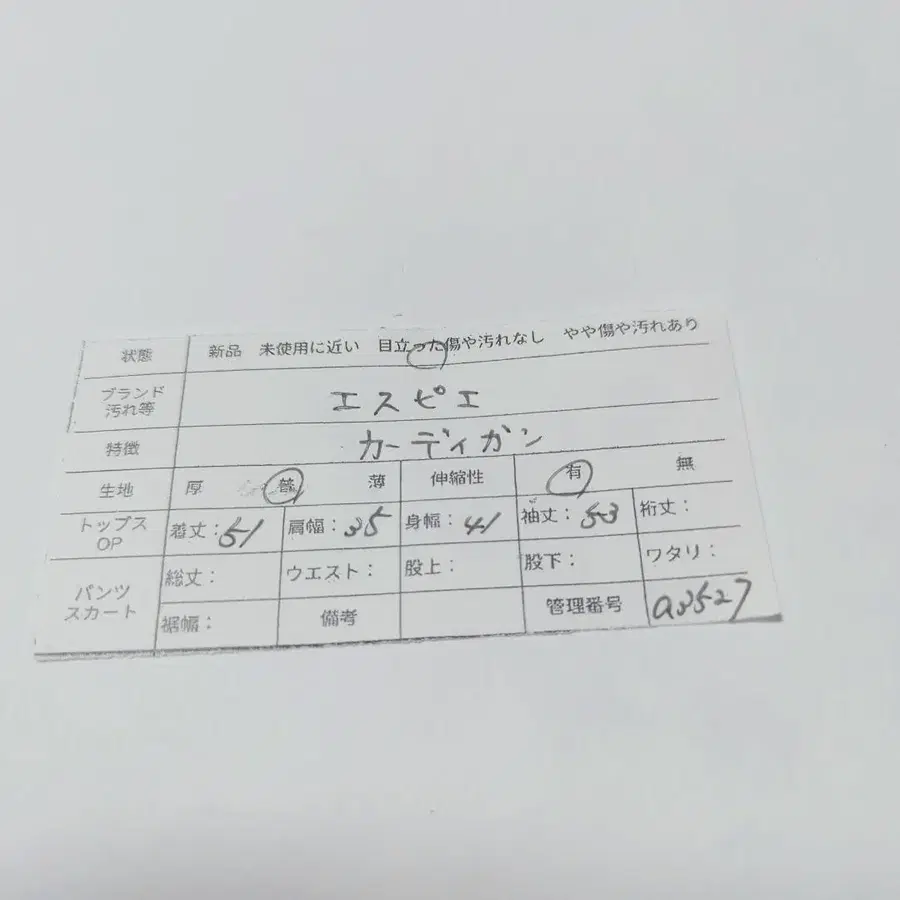 状態 新品 未使用に近い 目立った傷や汚れなし やや傷や汚れあり
ブランド 汚れ等 エスピエ
特徴 カーディガン
生地 厚 普 薄 伸縮性 有 無
トップス OP 着丈:51 肩幅:35 身幅:41 袖丈:53 裄丈:
パンツ スカート 総丈: ウエスト: 股上: 股下: ワタリ:
裾幅: 備考 管理番号 a3527